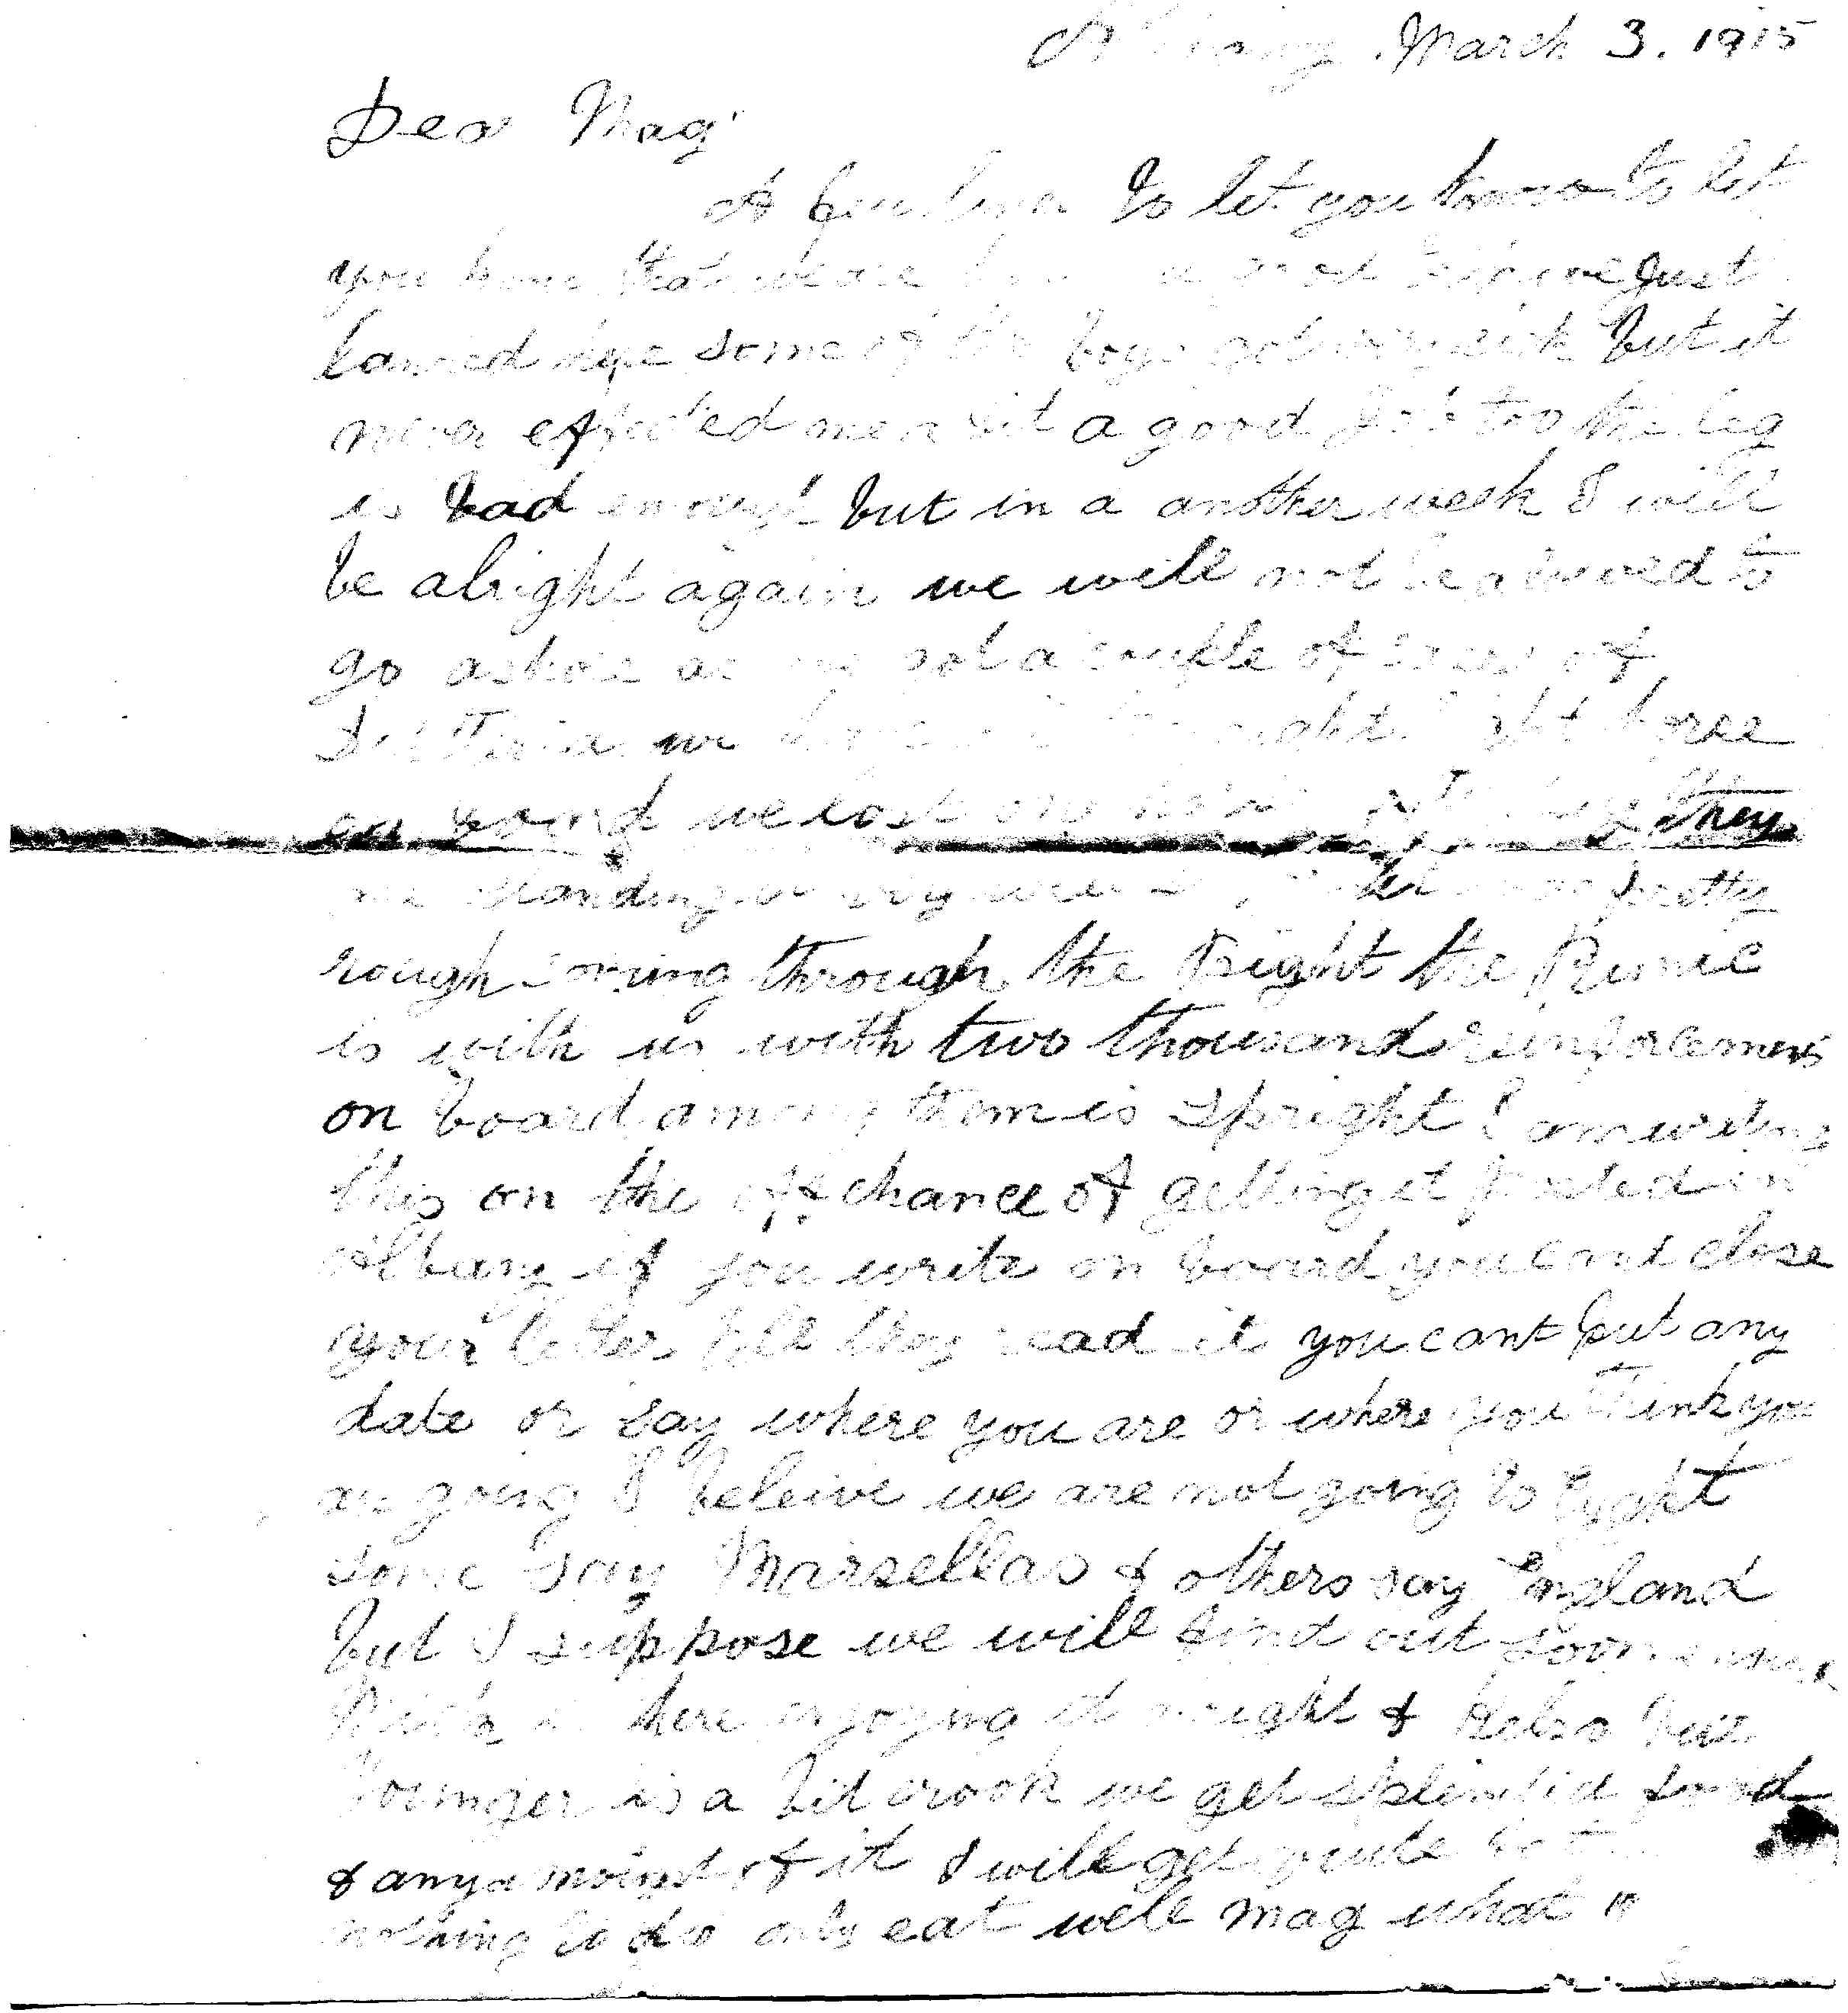 Albany. March 3. 1915
Dear Mag
A few lines to let you know to let
you know that we are just
landed here some of the boys got very sick but it
never effected me a bit a good job too the leg
is bad enough but in a another week I will
be alright again we will not be alowed to
go ashore as we got a couple of cases of
we horse
on board we lost one they
are standing it very well pretty
rough coming through the Bight the Runic
is with us with two thousand reinforcemens
on board among them is Spright I am writing
this on the off chance of getting it posted in
Albany if you write on board you cant close
your letter till they read it you cant put any
date or say where you are or where you think you
are going I beleive we are not going to Egypt
some say Marsellas & others say England
but I suppose we will find out soon enough
here enjoying it alright & Kelso but
Younger is a bit crook we get splendid food
& any amount of it I will get quite fat
nothing to do only eat well Mag what